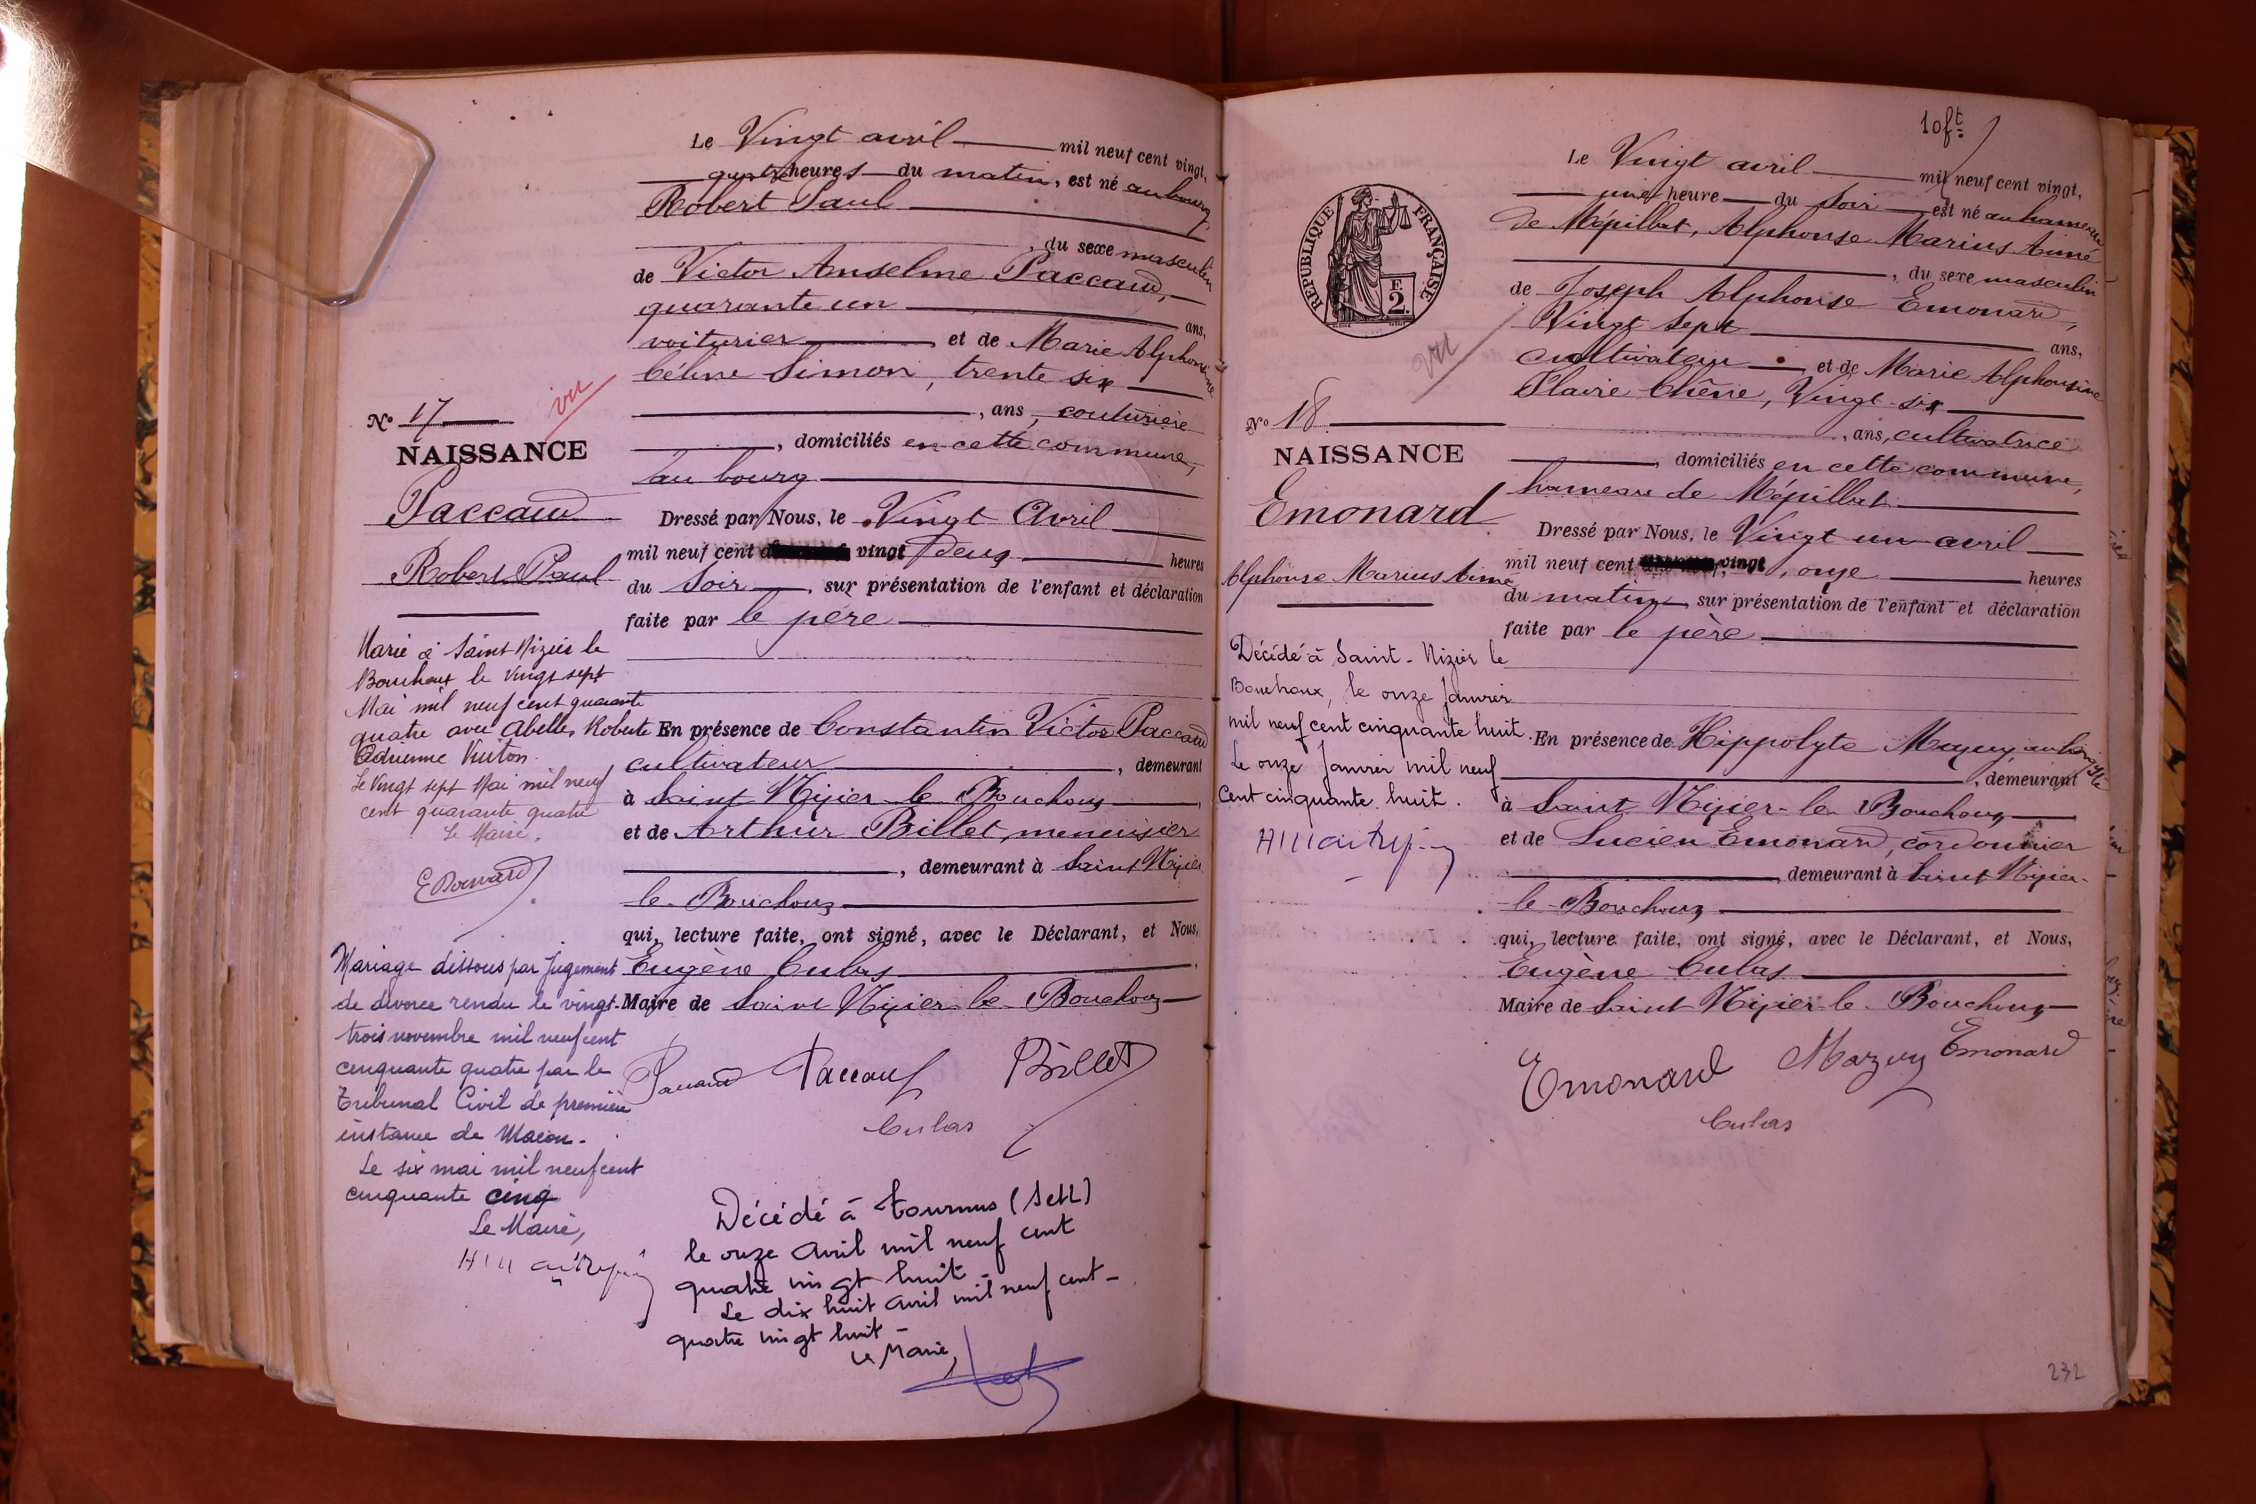 Le Vingt avril mil neuf cent vingt,
quatre heures du matin, est né au bourg
Robert Paul
, du sexe masculin
de Victor Anselme Paccaud,
quarante un ans,
voiturier et de Marie Alphonsine
Céline Simon, trente six
, ans, couturière
, domiciliés en cette commune,
au bourg
Dressé par Nous, le Vingt Avril
mil neuf cent vingt deux heures
du soir, sur présentation de l'enfant et déclaration
faite par le père
En présence de Constantin Victor Paccaud
cultivateur, demeurant
à Saint Nizier le Bouchoux,
et de Arthur Billet, menuisier
, demeurant à Saint Nizier
le Bouchoux
qui, lecture faite, ont signé, avec le Déclarant, et Nous,
Eugène Culas
Maire de Saint Nizier le Bouchoux
Paccaud Paccaud Billet
Culas
Décédé à Tournus (S et L)
le onze avril mil neuf cent
quatre vingt huit -
Le dix huit avril mil neuf cent -
quatre vingt huit -
Le Maire,
N° 17
vu
NAISSANCE
Paccaud
Robert Paul
Marié à Saint Nizier le
Bouchoux le vingt sept
Mai mil neuf cent quarante
quatre avec Abelle, Roberte
Adrienne Vuiton.
Le vingt sept Mai mil neuf
cent quarante quatre
Le Maire.
Mariage dissous par jugement
de divorce rendu le vingt-
trois novembre mil neuf cent
cinquante quatre par le
Tribunal Civil de première
instance de Macon.
Le six mai mil neuf cent
cinquante cinq
Le Maire,
10 ft
Le Vingt avril mil neuf cent vingt,
une heure du soir est né au hameau
de Mépillat, Alphonse Marius Aimé
, du sexe masculin
de Joseph Alphonse Emonard,
Vingt sept ans,
cultivateur et de Marie Alphonsine
Chêne, Vingt-six
, ans, cultivatrice
, domiciliés en cette commune,
hameau de Mépillat
Dressé par Nous, le Vingt un avril
mil neuf cent vingt, onze heures
du matin, sur présentation de l'enfant et déclaration
faite par le père
En présence de Hippolyte Mazuy, aubergiste
, demeurant
à Saint Nizier-le Bouchoux
et de Lucien Emonard, cordonnier
, demeurant à Saint Nizier-
le-Bouchoux
qui, lecture faite, ont signé, avec le Déclarant, et Nous,
Eugène Culas
Maire de Saint Nizier-le-Bouchoux
Emonard Mazuy Emonard
Culas
RÉPUBLIQUE FRANÇAISE
F.
2.
vu
N° 18
NAISSANCE
Emonard
Alphonse Marius Aimé
Décédé à Saint-Nizier le
Bouchoux, le onze Janvier
mil neuf cent cinquante huit.
Le onze Janvier mil neuf
cent cinquante huit.
232